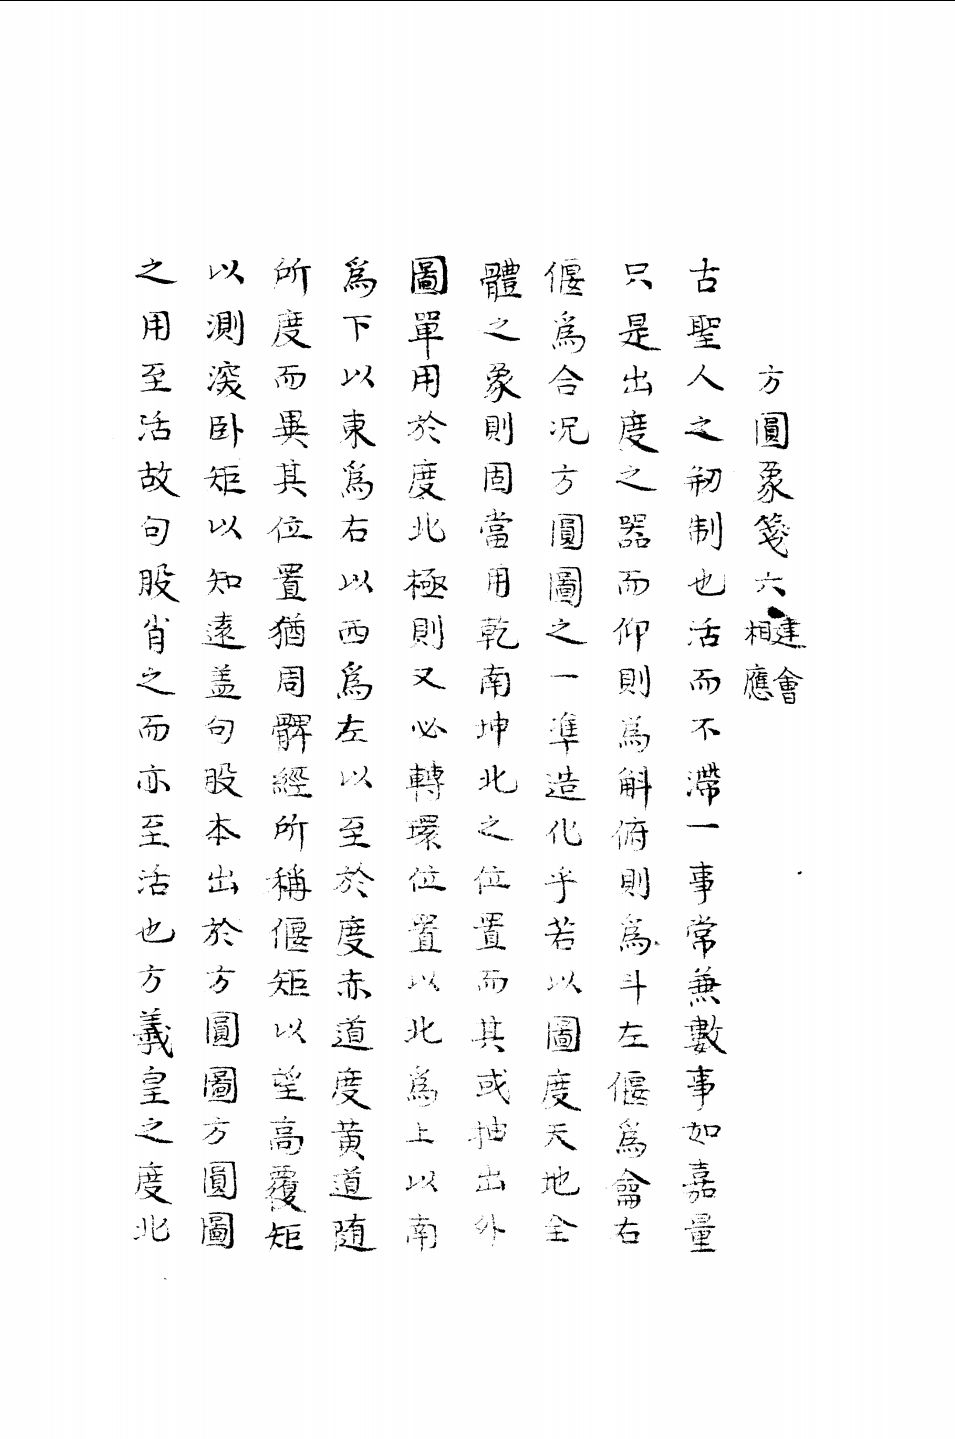 方圓象箋六 建會相應
古聖人之刱制也活而不滯一事常兼數事如嘉量
只是出度之器而仰則爲斛俯則爲斗左偃爲龠右
偃爲合况方圓圖之一準造化乎若以圖度天地全
體之象則固當用乾南坤北之位置而其或抽出外
圖單用於度北極則又必轉環位置以北爲上以南
爲下以東爲右以西爲左以至於度赤道度黄道随
所度而異其位置猶周髀經所稱偃矩以望高覆矩
以測深卧矩以知遠盖句股本出於方圓圖方圓圖
之用至活故句股肖之而亦至活也方羲皇之度北